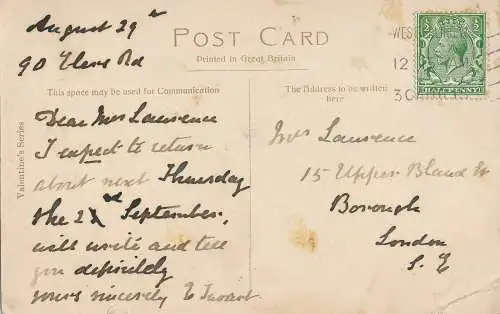 August 29th
90 Rd
POST CARD
Printed in Great Britain
This space may be used for Communication
The Address to be written
here
Valentine's Series
Dear Mrs Lawrence
I expect to return
about next Thursday
the 2nd September,
will write and tell
you definitely
yours sincerely E
Mrs Lawrence
15 Upper Bland St
Borough
London
S. E
WES
12
30
HALFPENNY